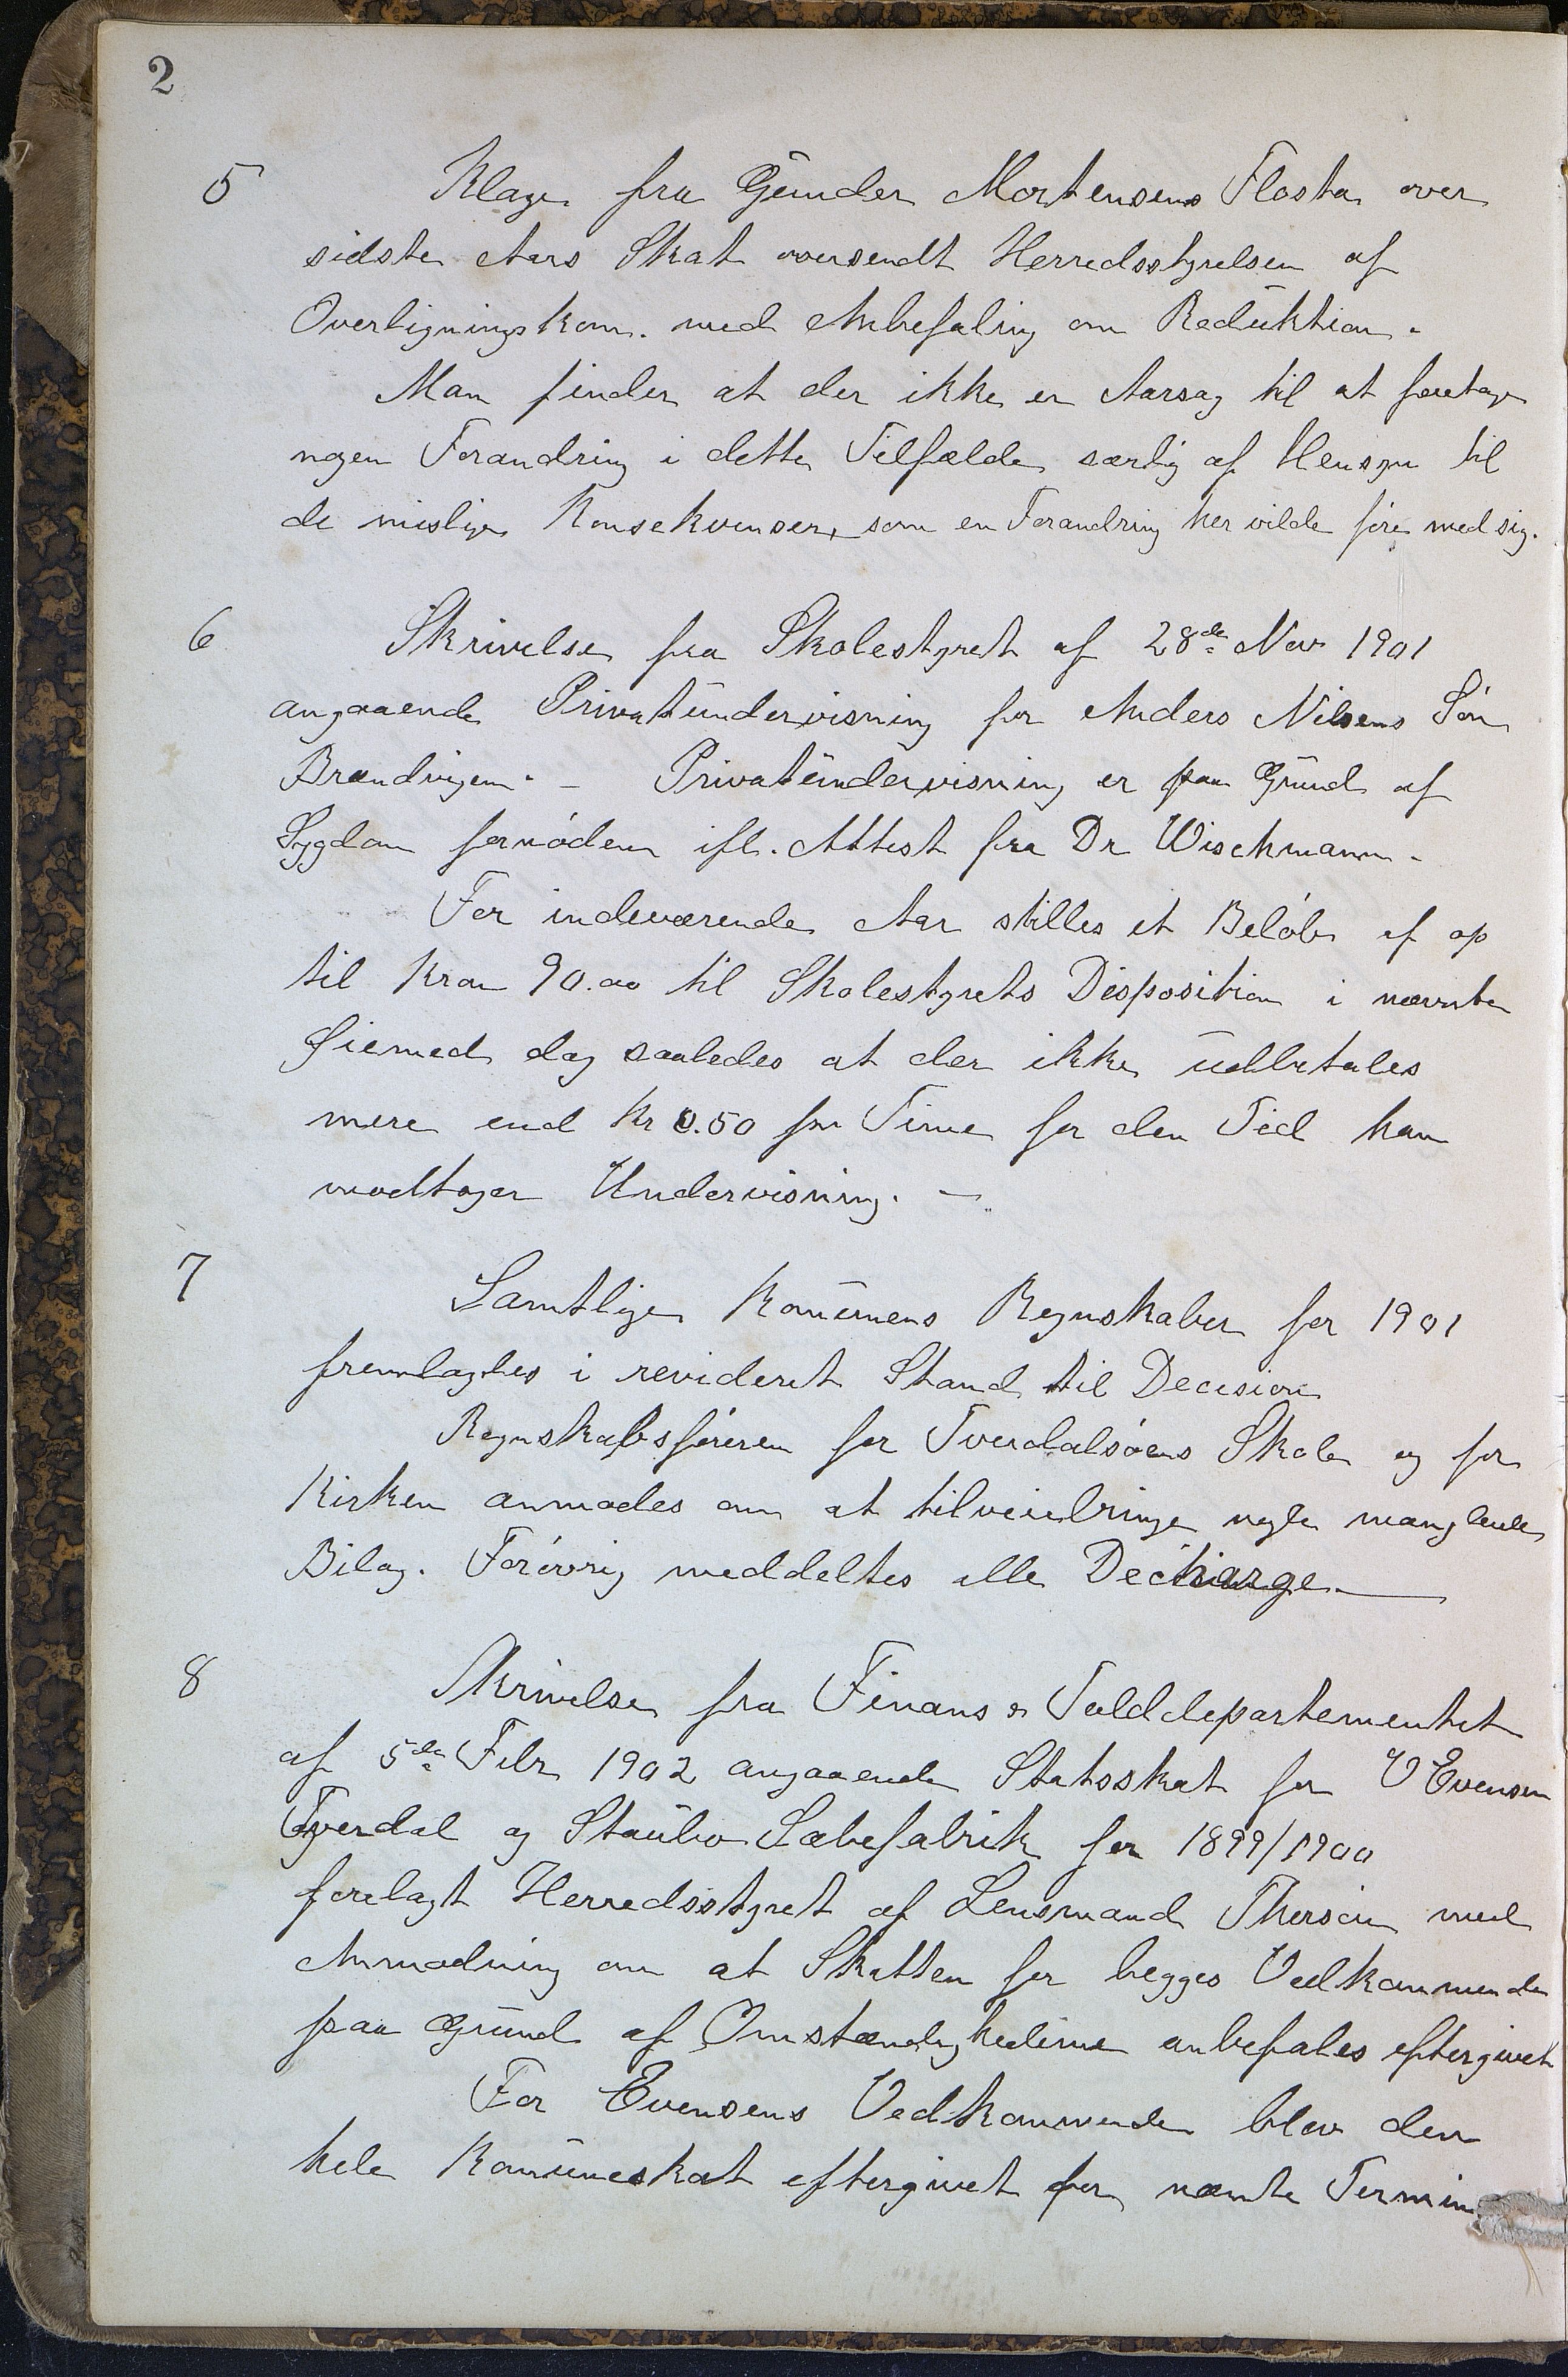 2
5 Klage fra Gunder Mortensens Flosta over
sidste Aars Skat oversendt Herredsstyrelsen af
Overligningskom. med Anbefaling om Reduktion.
Man finder at der ikke er Aarsag til at foretage
nogen Forandring i dette Tilfælde særlig af Hensyn til
de mislige Konsekvenser, som en Forandring her vilde føre med sig.
6 Skrivelse fra Skolestyret af 28de Nov 1901
angaaende Privatundervisning for Anders Nilsens Søn
Brændvigen. – Privatundervisning er paa Grund af
Sygdom fornøden ifl. Attest fra Dr Wischmann.
For indeværende Aar stilles et Beløb af op
til Kron 90.00 til Skolestyrets Disposition i nævnte
Øiemed dog saaledes at der ikke udbetales
mere end Kr 0.50 pr Time for den Tid han
modtager Undervisning. –
7 Samtlige Komunens Regnskaber for 1901
fremlagdes i revideret Stand til Decision
Regnskabsføreren for Tverdalsøens Skole og for
Kirken anmodes om at tilveiebringe nogle manglende
Bilag. Forøvrig meddeltes alle Decharge.
8 Skrivelse fra Finans & Tolddepartementet
af 5de Febr 1902 angaaende Statsskat for O Evensen
Tverdal og Staubo Sæbefabrik for 1899/1900
forelagt Herredsstyret af Lensmand Thersen med
Anmodning om at Skatten for begges Vedkommende
paa Grund af Omstændighederne anbefales eftergivet
For Evensens Vedkommende blev den
hele Komuneskat eftergivet for nævnte Termin